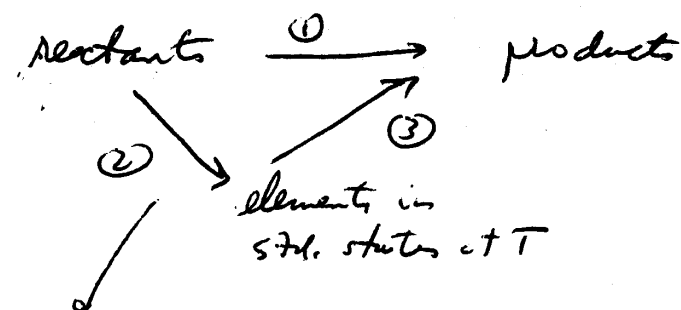 reactants ① products
② ③
elements in
std. states at T